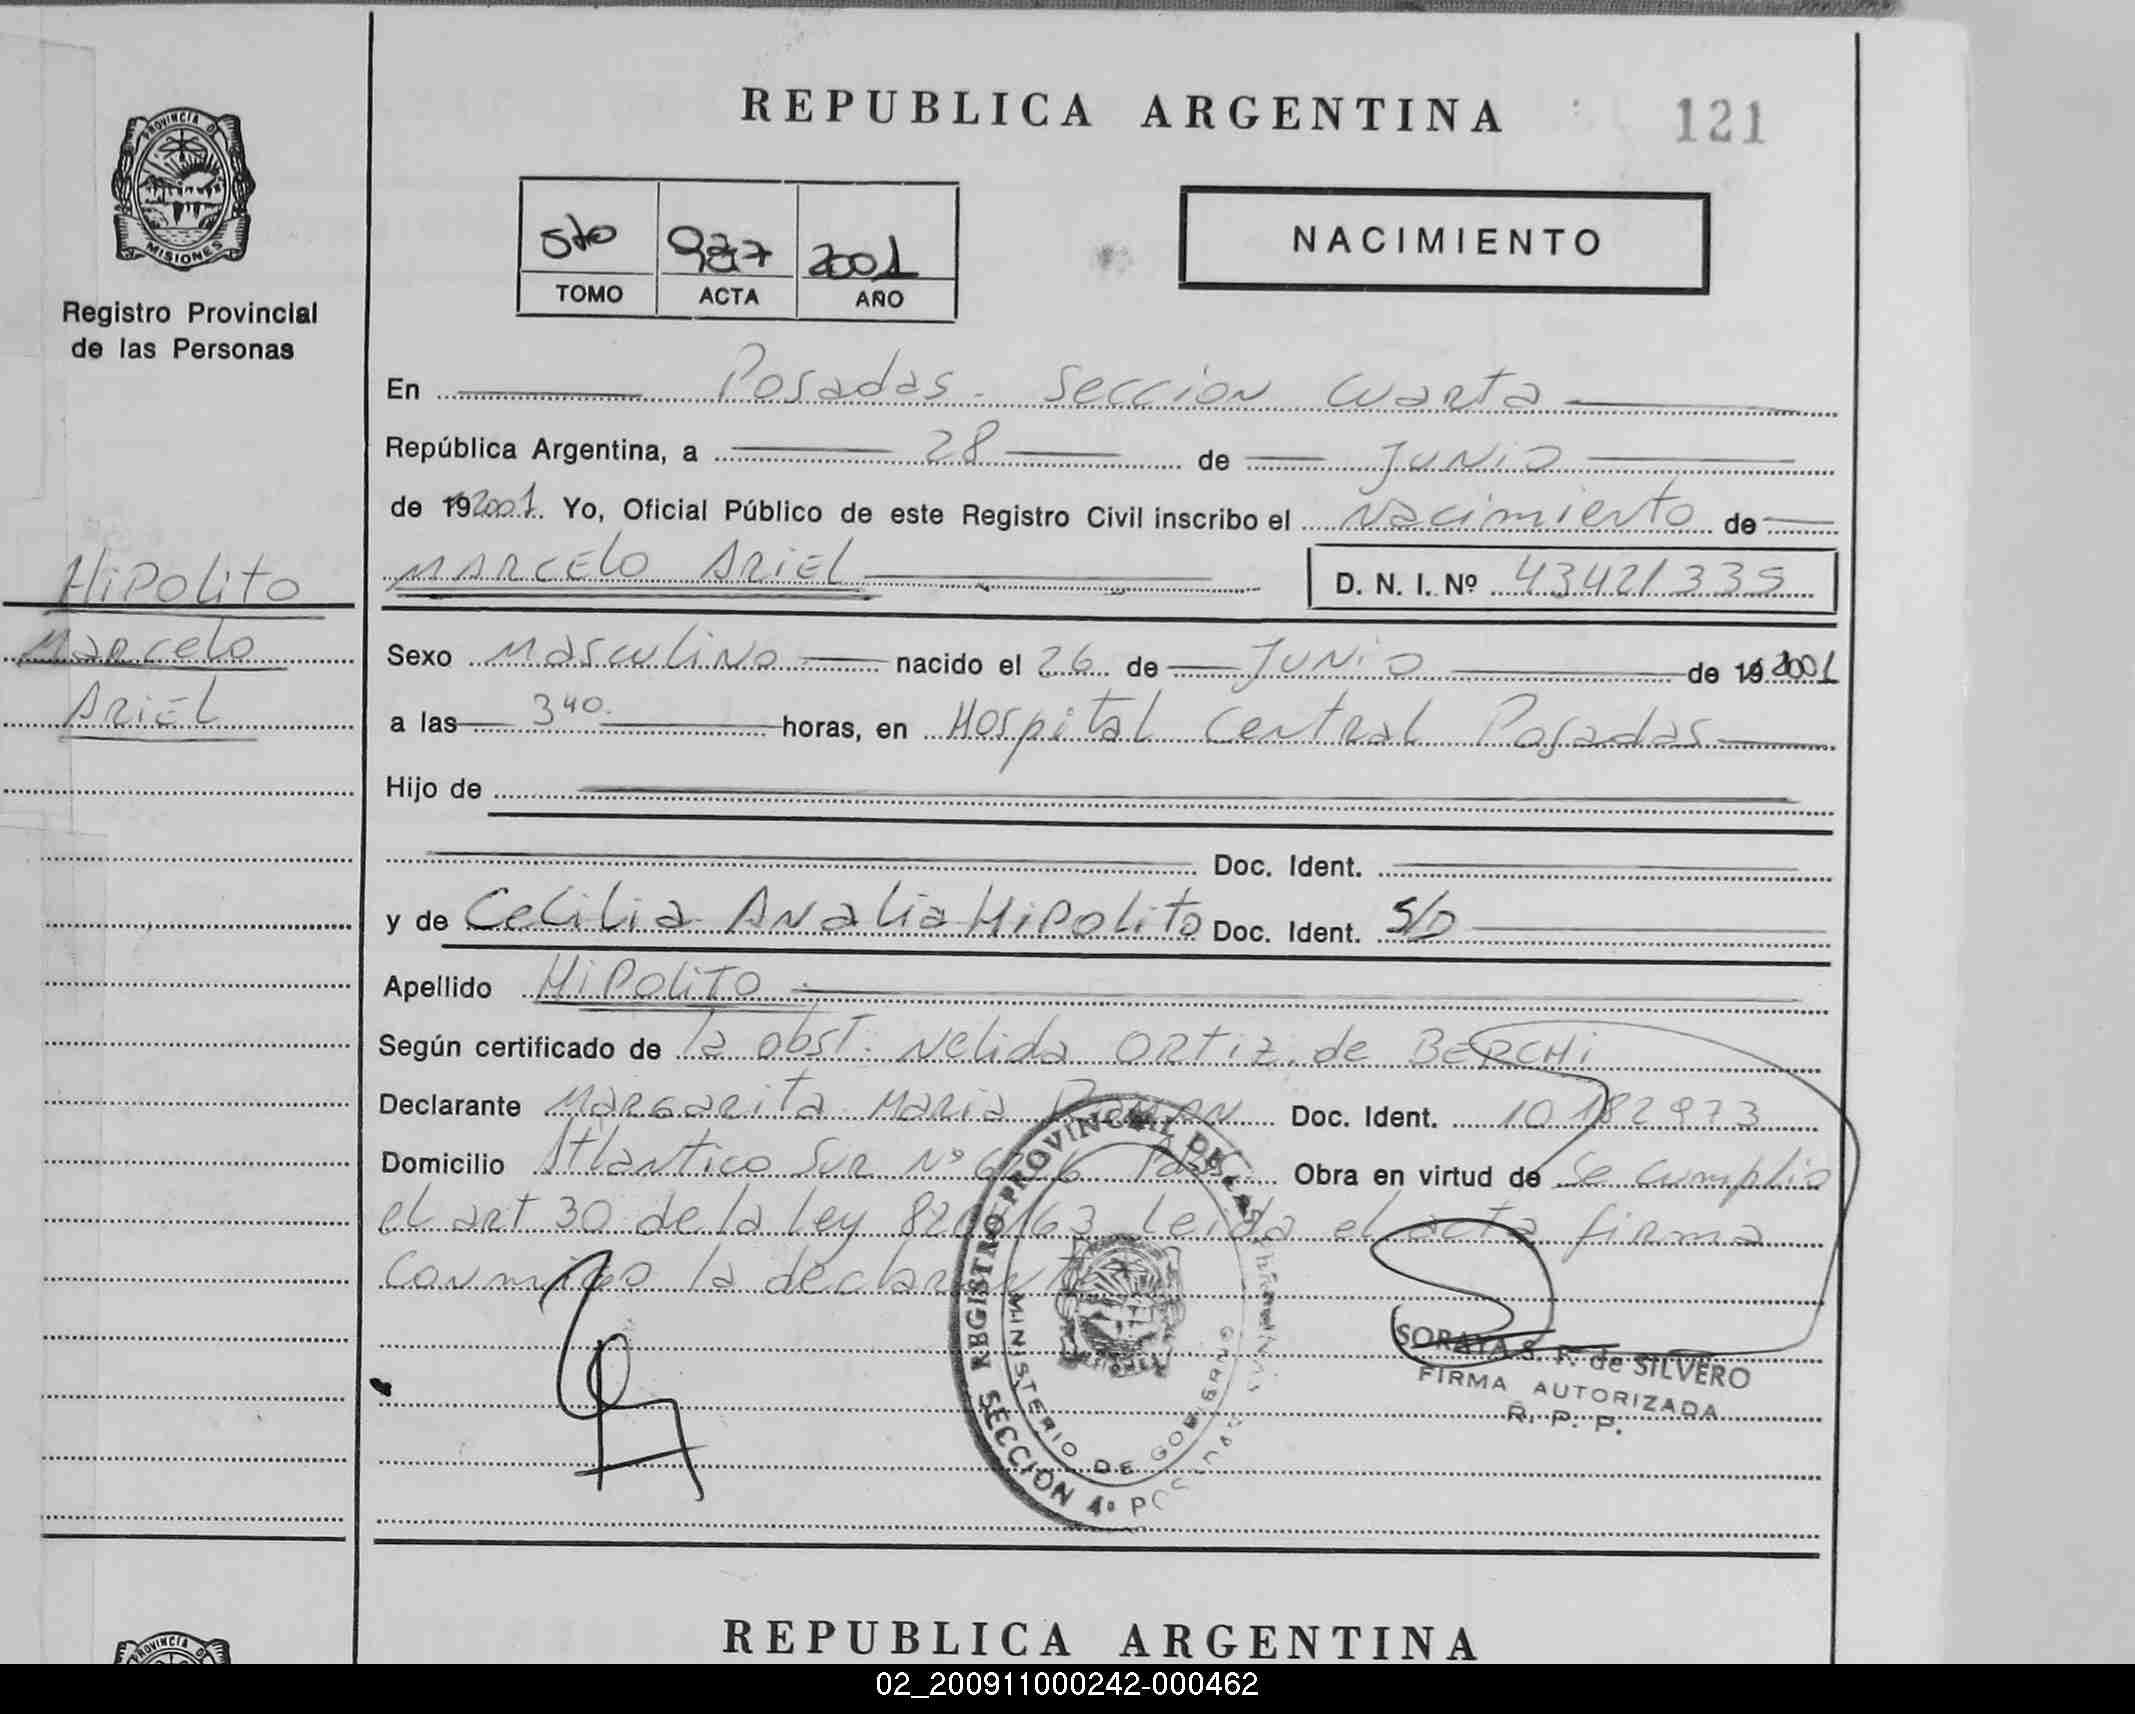 REPUBLICA ARGENTINA
121
PROVINCIA DE
MISIONES
Registro Provincial
de las Personas
5to 937 2001
TOMO ACTA AÑO
NACIMIENTO
En Posadas - Seccion Cuarta
República Argentina, a 28 de Junio
de 192001. Yo, Oficial Público de este Registro Civil inscribo el Nacimiento de
MARCELO ARIEL D. N. I. Nº 43421335
HiPolito
Marcelo
Ariel
Sexo Masculino nacido el 26 de Junio de 19 2001
a las 3 40. horas, en Hospital Central Posadas
Hijo de
Doc. Ident.
y de Cecilia Analia HiPolito Doc. Ident. S/D
Apellido HiPolito
Según certificado de la obst. Nelida Ortiz de BERCHi
Declarante Margarita Maria Doc. Ident. 10182973
Domicilio Atlantico Sur Nº Obra en virtud de se cumplio
el art 30 de la Ley leida el acta firma
conmigo la declarante
REGISTRO PROVINCIAL DE LAS
MINISTERIO DE GOBIERNO
SECCION 4º
SORAYA S. F. de SILVERO
FIRMA AUTORIZADA
R. P. P.
REPUBLICA ARGENTINA
PROVINCIA
02_200911000242-000462